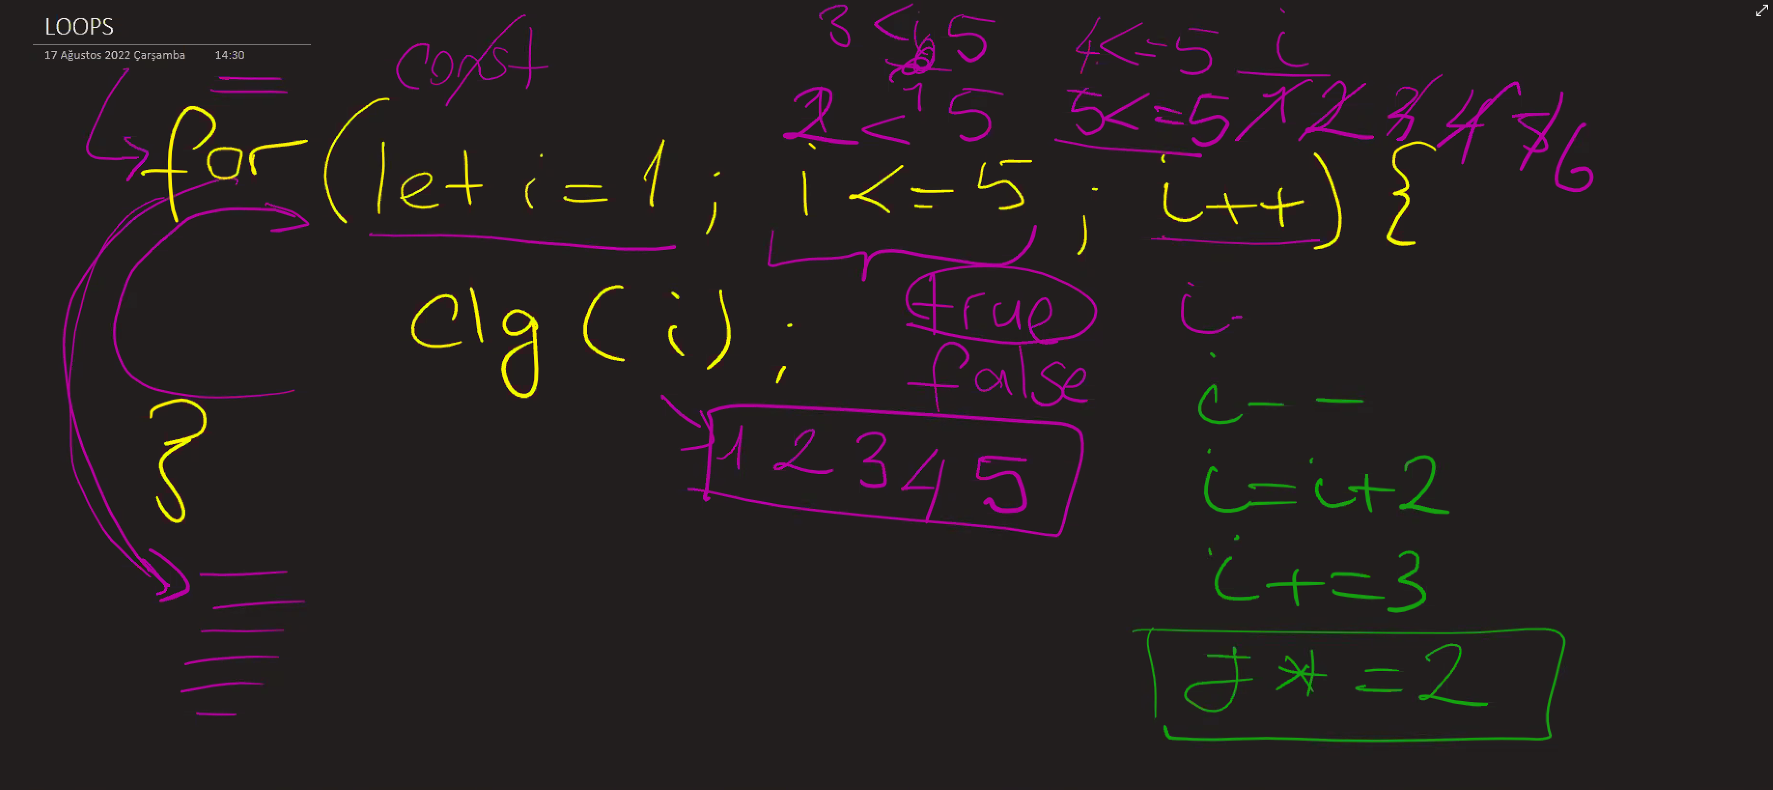 LOOPS
17 Ağustos 2022 Çarşamba 14:30
const
3 < 5
4 <= 5 i
2 < 5 5 <= 5 1 2 3 4 5 6
for (let i = 1 ; i <= 5 ; i++) {
clg (i) ;
true
i-
false
i--
1 2 3 4 5
i = i + 2
i += 3
J * = 2